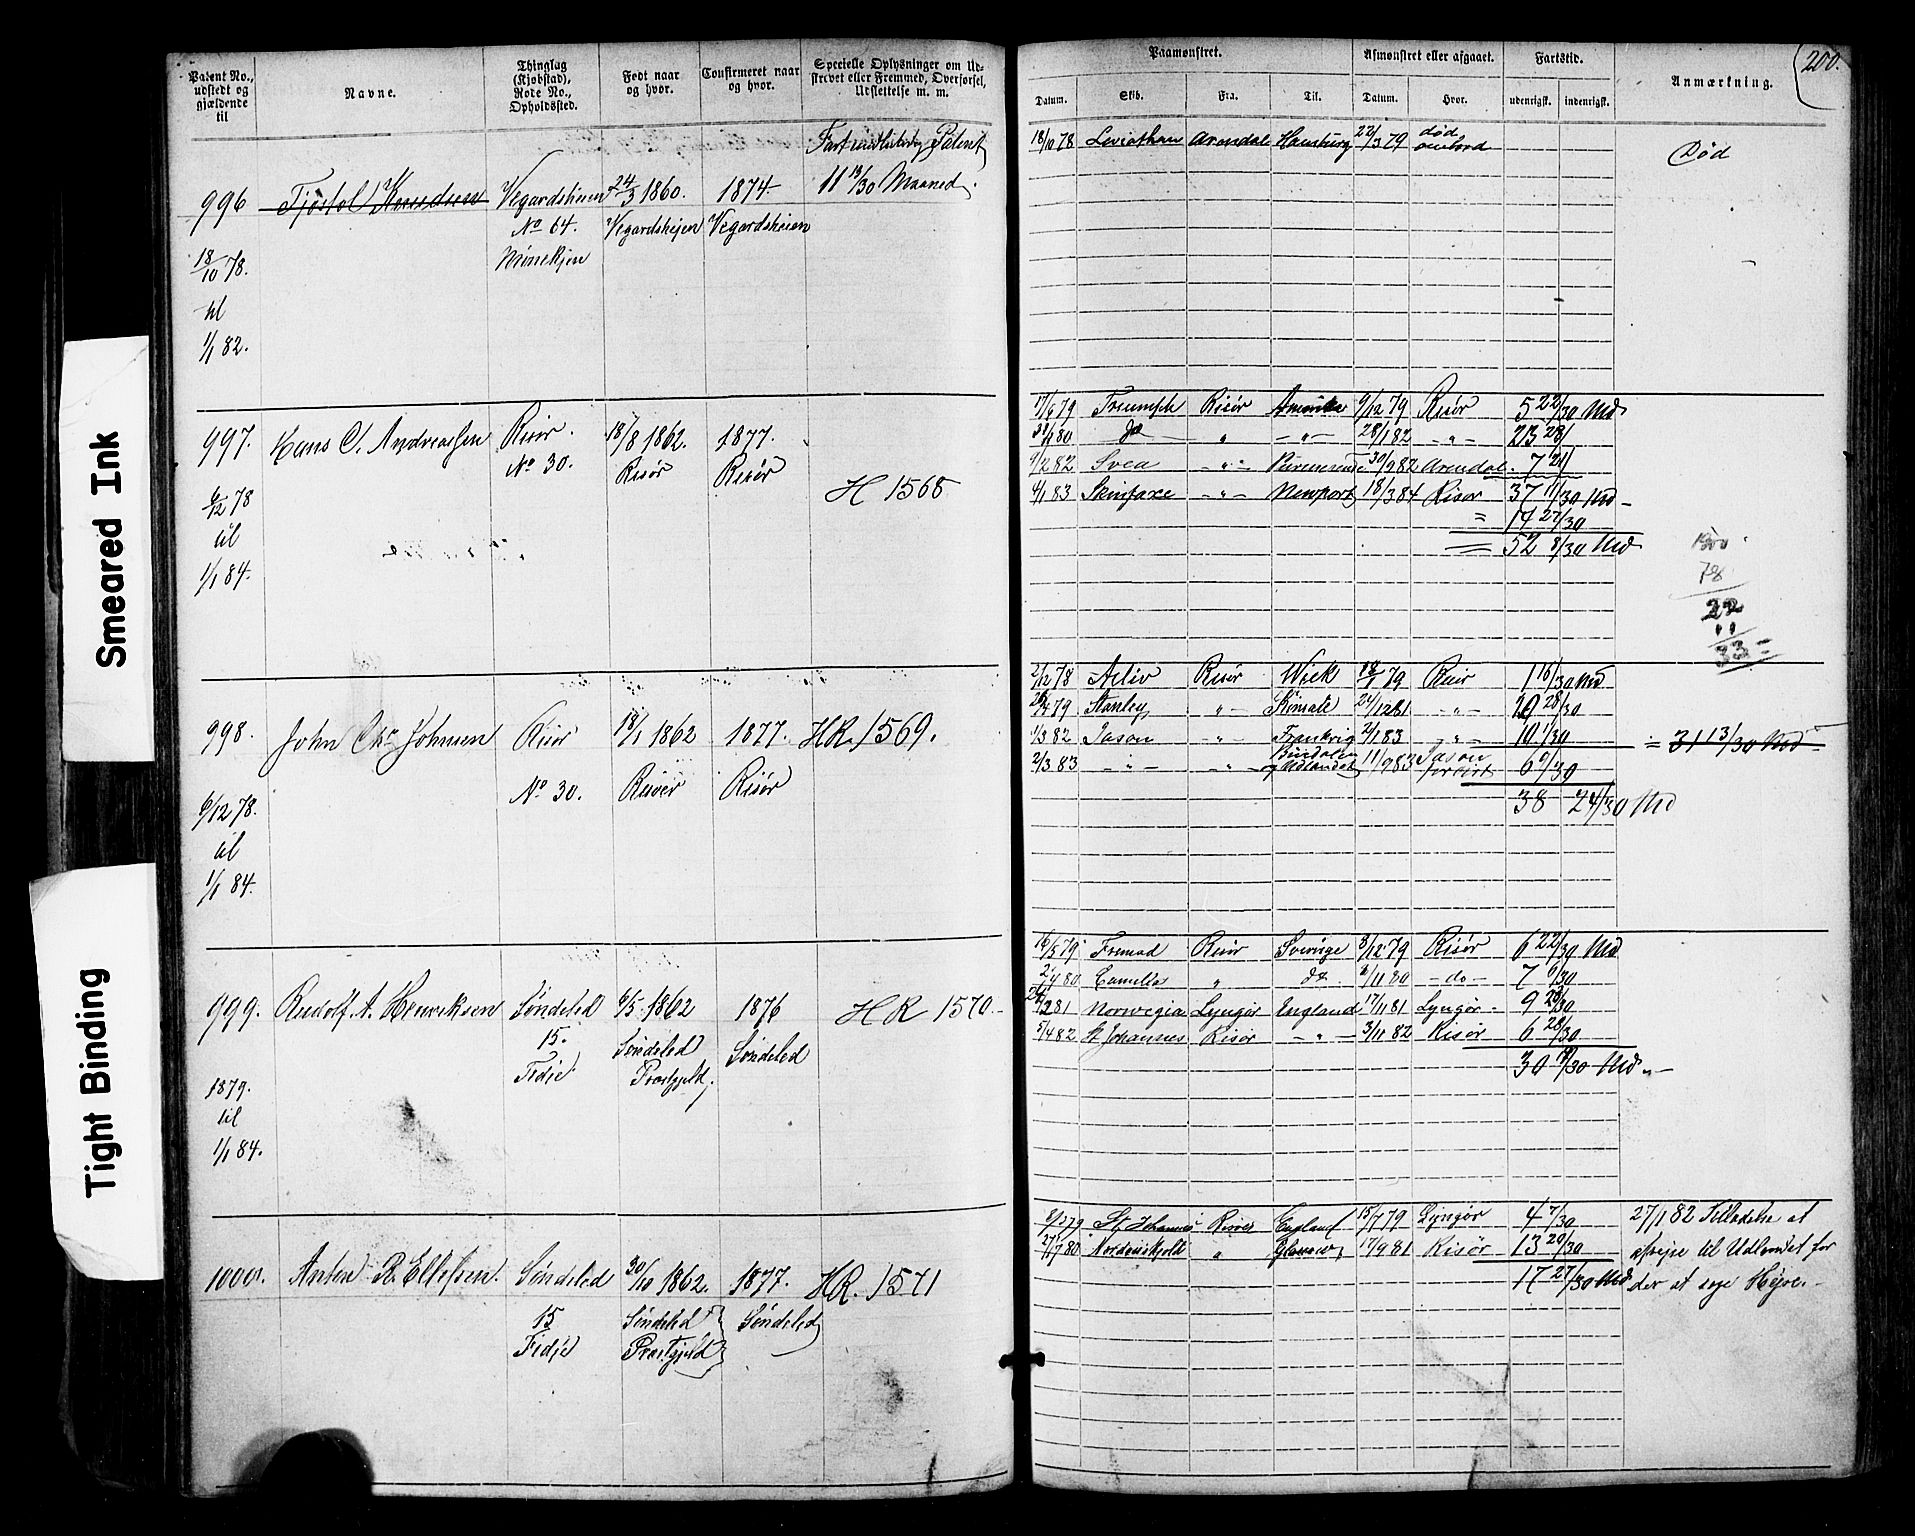 Smeared Ink
Tight Binding
Patent No., udstedt og gjældende til
Navne.
Thinglag (Kjøbstad), Rode No., Opholdssted.
Født naar og hvor.
Confirmeret naar og hvor.
Specielle Oplysninger om Udskrevet eller Fremmed, Overførsel, Udslettelse m. m.
Paamønstret.
Afmønstret eller afgaaet.
Fartstid.
Anmærkning.
200.
Datum.
Skib.
Fra.
Til.
Datum.
Hvor.
udenrigsk.
indenrigsk.
996
18/10 78.
til
1/1 82.
Tjøstol Knudsen
Vegardsheien
No 64.
24/3 1860.
Vegardshejen
1874
Vegardsheien
Patent
11 13/30 Maaned.
18/10 78 Leviathan Arendal Hamburg 22/3 79 død ombord
Død
997.
6/12 78
til
1/1 84.
Hans C. Andreassen
Risør.
No 30.
18/8 1862.
Risør
1877.
Risør
H 1568
17/4 79 Triumph Risør Amerika 9/12 79 Risør 5 22/30 Md
80 do " — " — 28/1 82 — " — 23 28/
9/2 82 Svea — " — 30/9 82 Arendal. 7 21/
4/1 83 Skinfaxe — " — Newport 18/3 84 Risør 37 11/30 Md
= 14 27/30
= 52 8/30 Md
1800
78
22
11
33 =
998.
6/12 78.
til
1/1 84.
John Chr. Johnsen
Risør
No 30.
18/1 1862
Risøer
1877.
Risør
HR. 1569.
2/12 78 Activ Risør Wick 18/1 79 Risør 1 16/30 Md
79 Stanley " — Kinsale 24/12 81 — " — 20 28/30
1/3 82 Jason — " — Frankrig 2/1 83 — " — 10 1/30
= 31 13/30 Md
2/3 83 — " — — " — og Udlandet 11/9 83 Jason forlist 6 9/30
38 24/30 Md
999.
1879.
til
1/1 84.
Rudolf A. Henriksen
Søndeled
15.
Fidje
6/5 1862
Søndeled
Præstgjeld.
1876
Søndeled
HR 1570.
16/5 79 Fremad Risør Sverige 8/12 79 Risør 6 22/30 Md
2/4 80 Camilla " do 8/11 80 — do — 7 6/30
81 Norwegia Lyngør England 17/11 81 Lyngør 9 23/30
5/4 82 St Johannes Risør — " — 3/11 82 Risør 6 28/30
30 19/30 Md.
1000.
Anton R. Ellefsen.
Søndeled
15
Fidje
30/10 1862.
Søndeled
Præstgjeld
1877.
Søndeled
HR. 1571
8/3 79 St. Johannes Risøer England 15/7 79 Lyngør 4 7/30
27/7 80 Nordenskjold " Glasgow 17/9 81 Risør 13 20/30
17 27/30 Md.
27/1 82 Tilladelse at
afrejse til Udlandet for
der at søge Hyre.